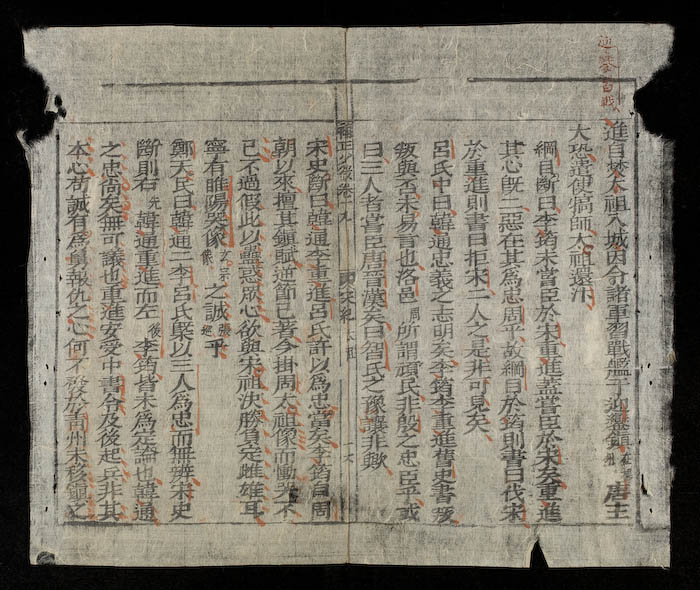 進自焚太祖入城因令諸軍習戰艦于迎鑾鎮唐主
大恐遣使犒師太祖還汴
綱目斷曰李筠未嘗臣於宋重進蓋嘗臣於宋矣重進
其心旣二惡在其爲忠周乎故綱目於筠則書曰伐宋
於重進則書曰拒宋二人之是非可見矣
呂氏中曰韓通忠義之志明矣李筠李重進舊史書叛
叛與否未易言也洛邑周所謂頑民非殷之忠臣乎或
曰三人者嘗臣唐晋漢矣曰智氏之豫讓非歟
卷九
宋史斷曰韓通李重進呂氏許以爲忠當矣李筠自周
朝以來擅其鎮賦逆節已著今掛周太祖像而慟哭不
已不過假此以蠱惑衆心欲與宋祖決勝負定雌雄耳
寧有睢陽哭像玄宗像之誠張巡乎
鄭夫氏曰韓通二李呂氏槩以三人爲忠而無辨宋史
斷則右先韓通重進而左後李筠皆未爲定論也韓通
之忠尚矣無可議也重進安受中書令及後起兵非其
本心苟誠有爲報仇之心何不發於靑州未移鎮之